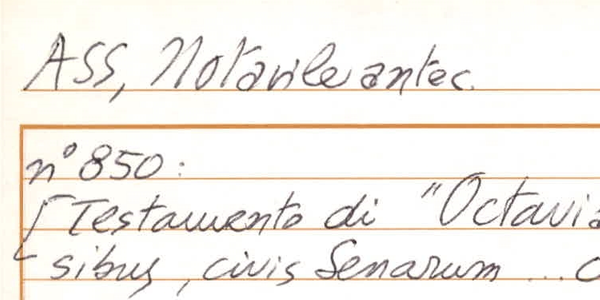 ASS, Notarile antec.
n° 850:
[Testamento di "Octavia
sibus, civis Senarum ...